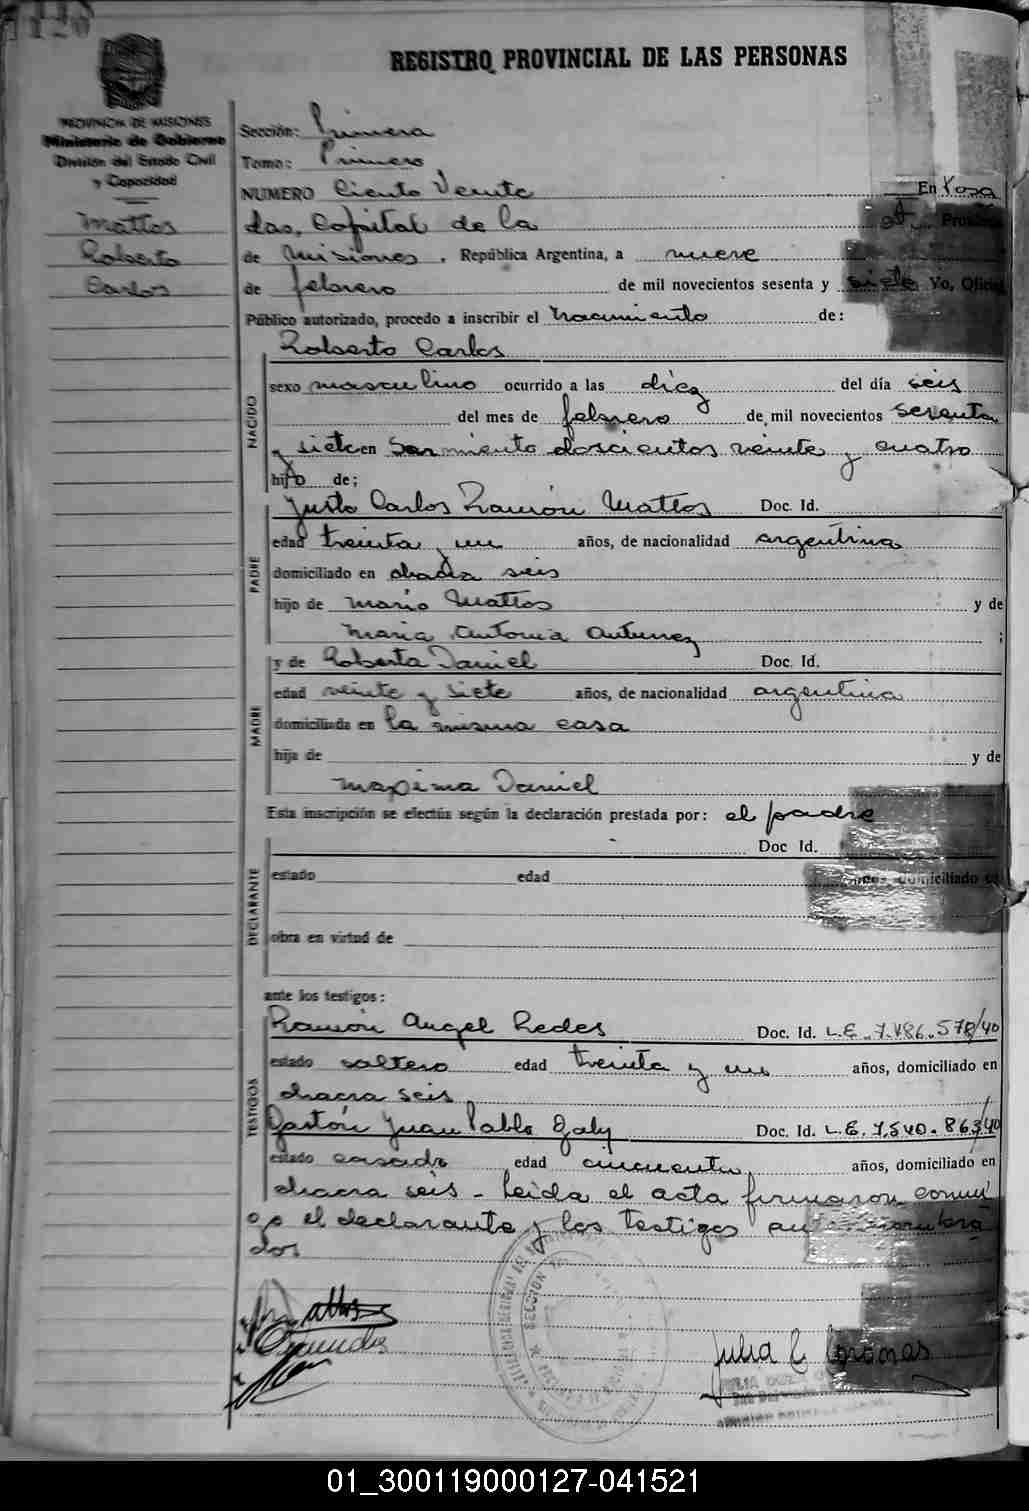 120
REGISTRO PROVINCIAL DE LAS PERSONAS
PROVINCIA DE MISIONES
Ministerio de Gobierno
División del Estado Civil
y Capacidad
Mattos
Roberto
Carlos
Sección: Primera
Tomo: Primero
NUMERO Ciento Veinte En Posa
das, Capital de la
de Misiones, República Argentina, a nueve
de febrero de mil novecientos sesenta y siete Yo, Oficial
Público autorizado, procedo a inscribir el nacimiento de:
NACIDO
Roberto Carlos
sexo masculino ocurrido a las diez del día seis
del mes de febrero de mil novecientos sesenta
y siete en Sarmiento doscientos veinte y cuatro
hijo de;
PADRE
Justo Carlos Ramón Mattos Doc. Id.
edad treinta y un años, de nacionalidad argentina
domiciliado en chacra seis
hijo de Mario Mattos y de
Maria Antonia Antunez ;
MADRE
y de Roberta Daniel Doc. Id.
edad veinte y siete años, de nacionalidad argentina
domiciliada en la misma casa
hija de y de
Maxima Daniel
Esta inscripción se efectúa según la declaración prestada por: el padre
DECLARANTE
Doc Id.
estado edad años, domiciliado en
obra en virtud de
ante los testigos:
TESTIGOS
Ramón Angel Redes Doc. Id. L.E. 7.486.578/40
estado soltero edad treinta y un años, domiciliado en
chacra seis
Gastón Juan Pablo Galy Doc. Id. L.E. 7.540.863/40
estado casado edad cincuenta, años, domiciliado en
chacra seis - Leida el acta firmaron conmi
go el declarante y los testigos antes nombra
dos
Mattos
Julia C.
01_300119000127-041521